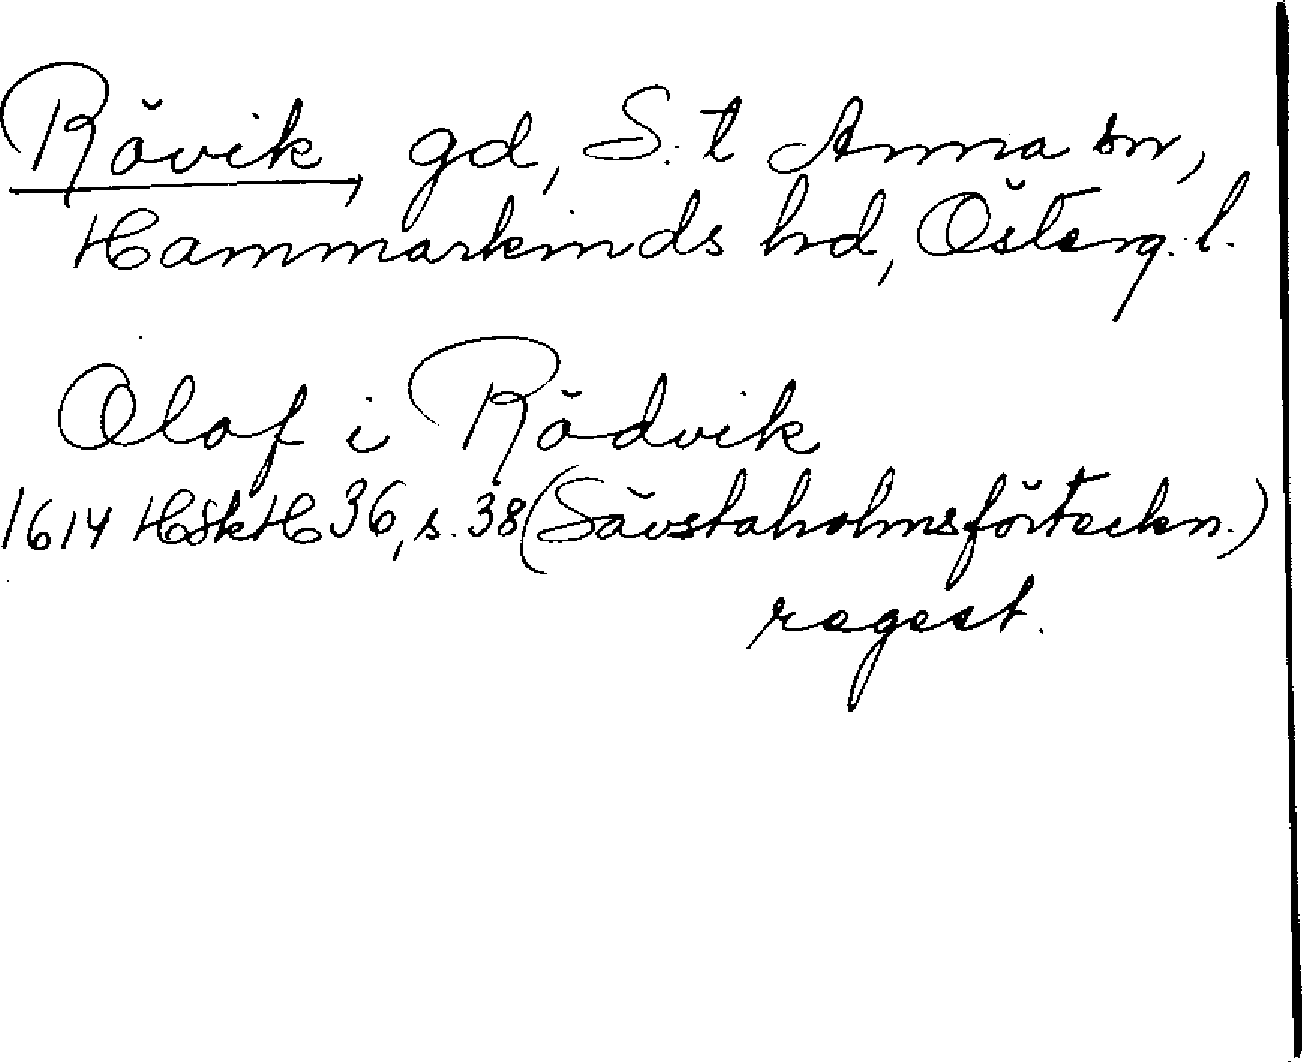 Rövik, gd, S:t Anna sn,
Hammarkinds hd, Österg. l.
Olof i Rödvik
1614 HSkH 36, s. 38 (Sävstaholmsförteckn.)
regest.